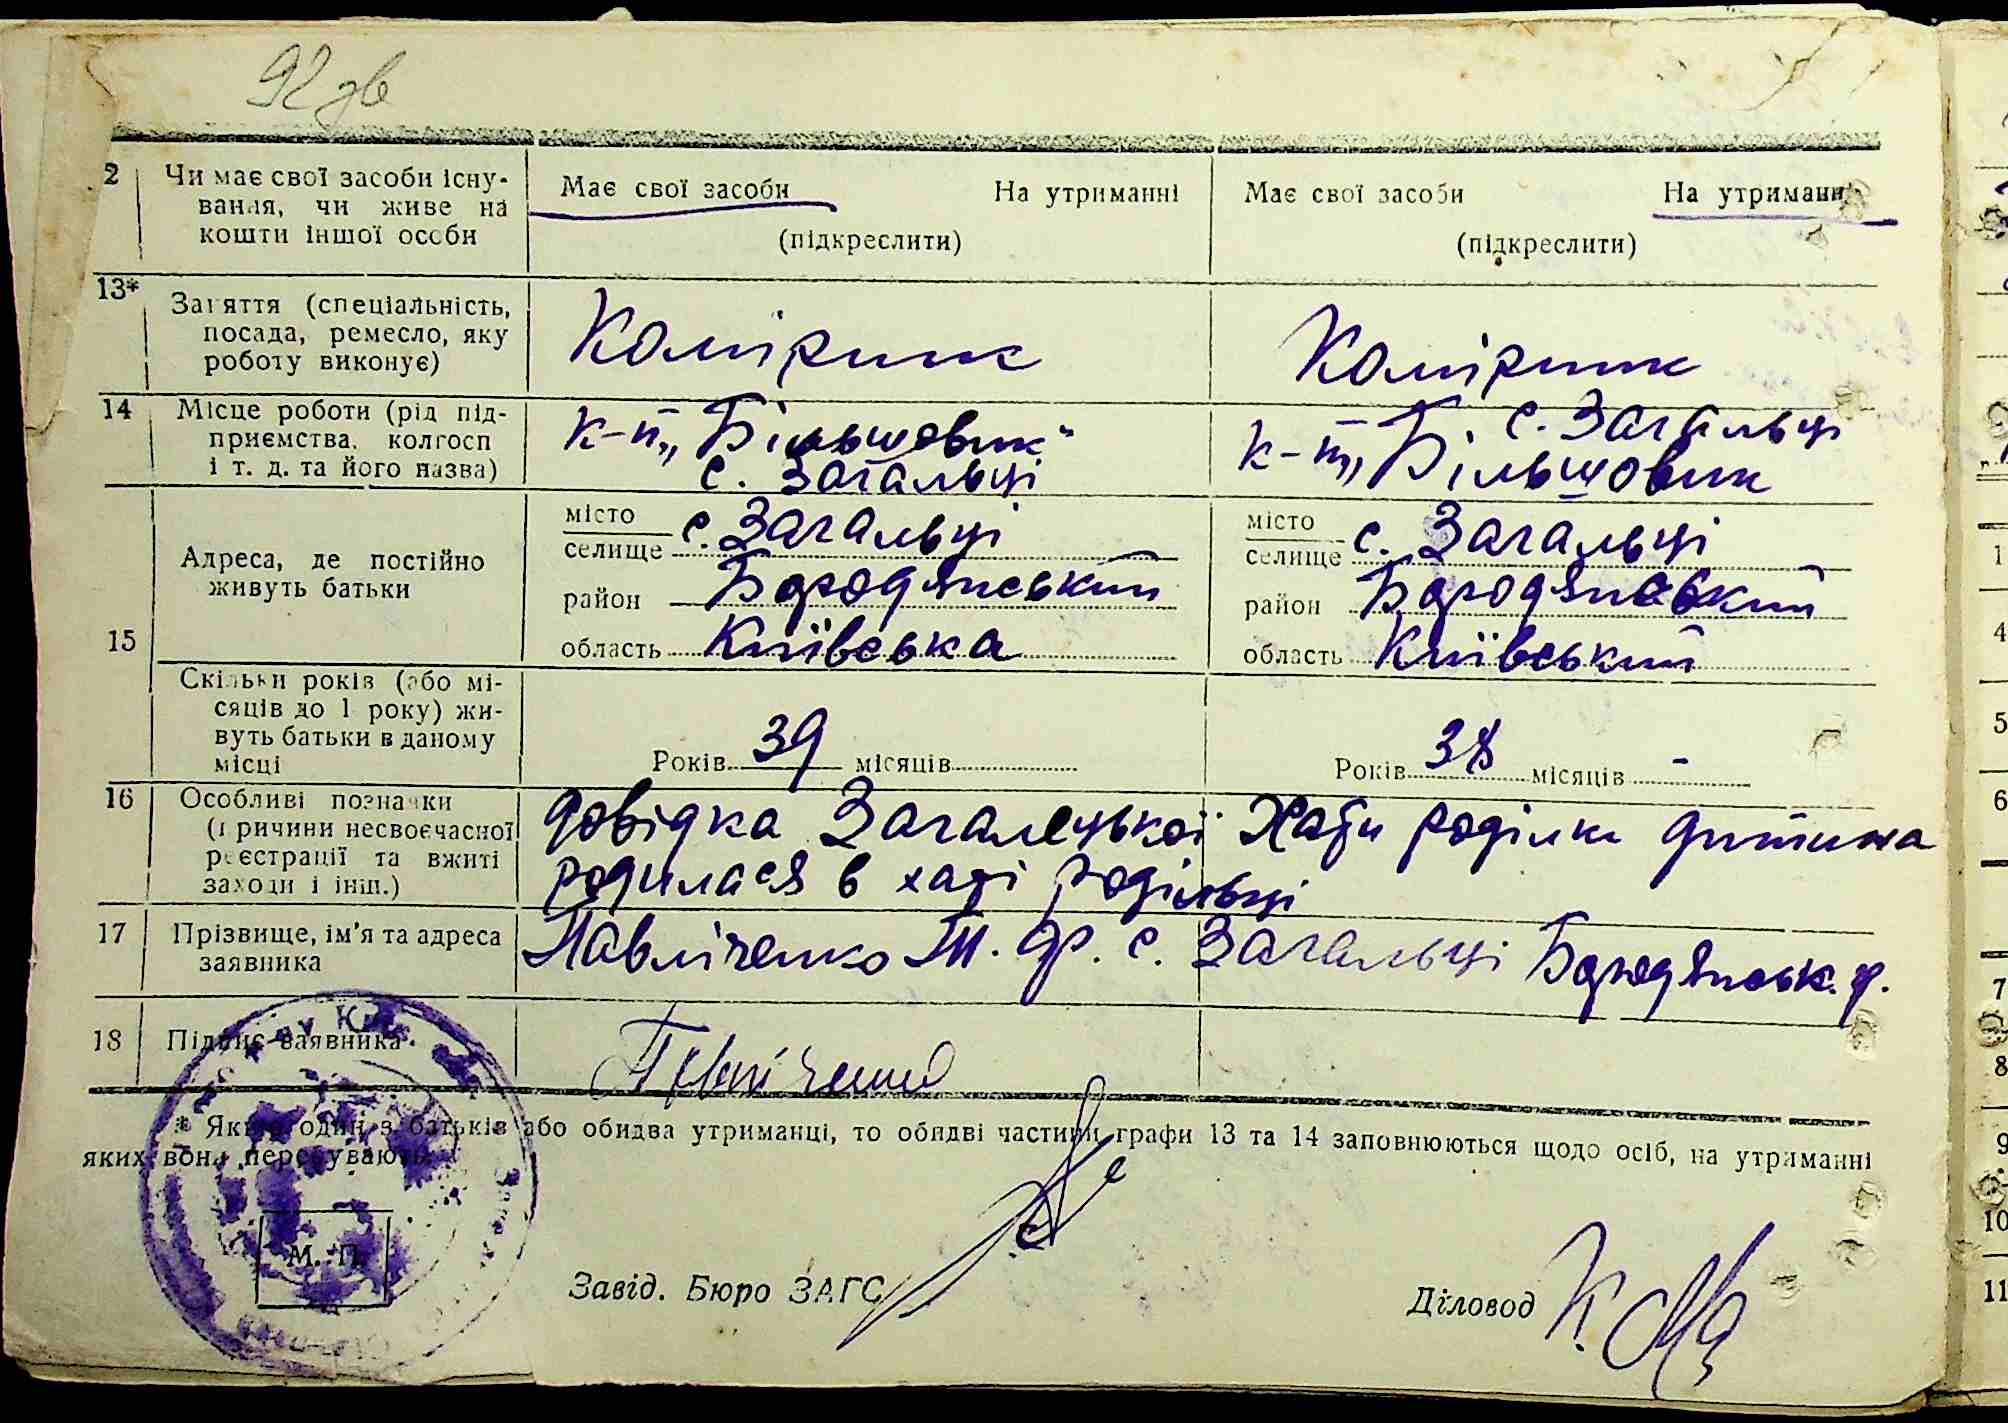 92 зв
2 Чи має свої засоби існу-
вання, чи живе на
кошти іншої особи
Має свої засоби На утриманні
(підкреслити)
Має свої засоби На утриманні
(підкреслити)
13* Заняття (спеціальність,
посада, ремесло, яку
роботу виконує)
Комірник
Комірник
14 Місце роботи (рід під-
приємства, колгосп
і т. д. та його назва)
к-п „Більшовик"
с. Загальці
с. Загальці
к-п „Більшовик
15 Адреса, де постійно
живуть батьки
місто
селище с. Загальці
район Бородянський
область Київська
місто
селище с. Загальці
район Бородянський
область Київський
Скільки років (або мі-
сяців до 1 року) жи-
вуть батьки в даному
місці
Років 39 місяців
Років 38 місяців -
16 Особливі позначки
(причини несвоєчасної
реєстрації та вжиті
заходи і інш.)
довідка Загалецької Хати роділки дитина
родилася в хаті родільці
17 Прізвище, ім'я та адреса
заявника
Павліченко Т. Ф. с. Загальці Бородянськ. р.
18 Підпис заявника
Павліченко
* Якщо один з батьків або обидва утриманці, то обидві частини графи 13 та 14 заповнюються щодо осіб, на утриманні
яких вони перебувають.
М. П.
Завід. Бюро ЗАГС
Діловод